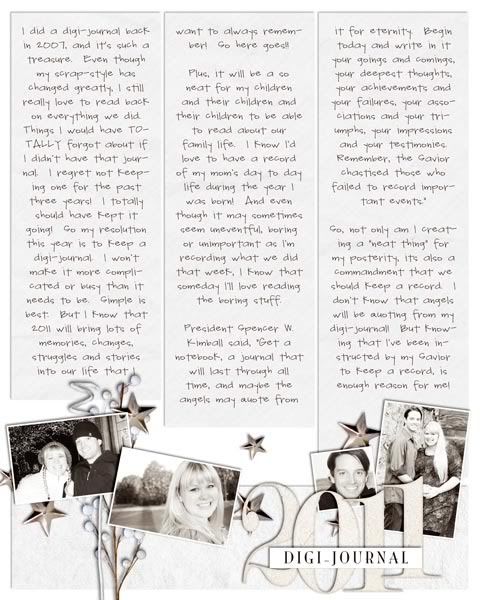 I did a digi-journal back
in 2007, and it's such a
treasure. Even though
my scrap-style has
changed greatly, I still
really love to read back
on everything we did.
Things I would have TO-
TALLY forgot about if
I didn't have that jour-
nal. I regret not keep-
ing one for the past
three years! I totally
should have kept it
going! So my resolution
this year is to keep a
digi-journal. I won't
make it more compli-
cated or busy than it
needs to be. Simple is
best. But I know that
2011 will bring lots of
memories, changes,
struggles and stories
into our life that I
want to always remem-
ber! So here goes!!
Plus, it will be a so
neat for my children
and their children and
their children to be able
to read about our
family life. I know I'd
love to have a record
of my mom's day to day
life during the year I
was born! And even
though it may sometimes
seem uneventful, boring
or unimportant as I'm
recording what we did
that week, I know that
someday I'll love reading
the boring stuff.
President Spencer W.
Kimball said, "Get a
notebook, a journal that
will last through all
time, and maybe the
angels may quote from
it for eternity. Begin
today and write in it
your goings and comings,
your deepest thoughts,
your achievements and
your failures, your asso-
ciations and your tri-
umphs, your impressions
and your testimonies.
Remember, the Savior
chastised those who
failed to record impor-
tant events."
So, not only am I creat-
ing a "neat thing" for
my posterity, its also a
commandment that we
should keep a record. I
don't know that angels
will be quoting from my
digi-journal! But know-
ing that I've been in-
structed by my Savior
to keep a record, is
enough reason for me!
2011
DIGI-JOURNAL